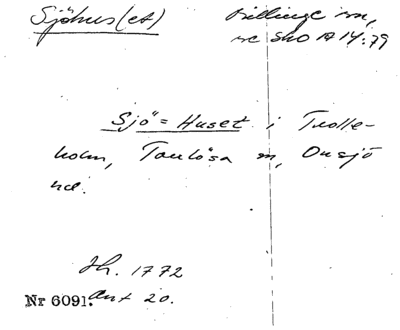 Sjöhus(et) Billinge sn,
se Sko A 14:79
Sjö=Huset i Trolle-
holm, Torrlösa sn, Onsjö
hd.
Jh. 1772
Nr 6091. Akt 20.